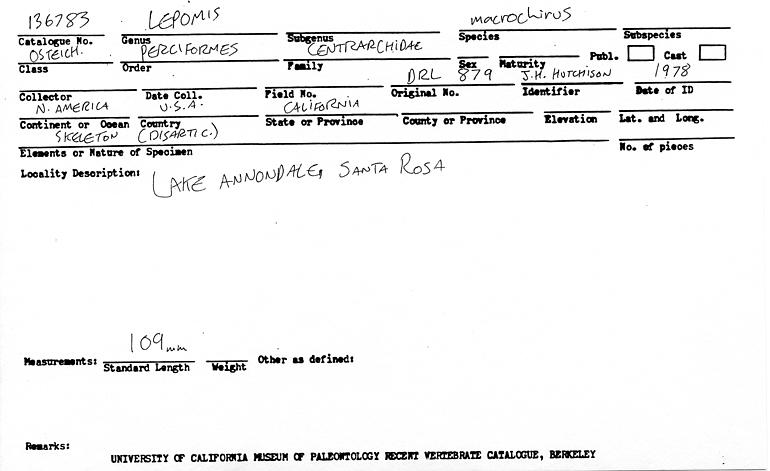 136783 LEPOMIS macrochirus
Catalogue No. Genus Subgenus Species Subspecies
OSTEICH. PERCIFORMES CENTRARCHIDAE Publ. Cast
Class Order Family Sex Maturity
DRL 879 J.H. HUTCHISON 1978
Collector Date Coll. Field No. Original No. Identifier Date of ID
N. AMERICA U.S.A. CALIFORNIA
Continent or Ocean Country State or Province County or Province Elevation Lat. and Long.
SKELETON (DISARTIC.)
Elements or Nature of Specimen No. of pieces
Locality Description: LAKE ANNONDALE, SANTA ROSA
109mm
Measurements: Standard Length Weight Other as defined:
Remarks:
UNIVERSITY OF CALIFORNIA MUSEUM OF PALEONTOLOGY RECENT VERTEBRATE CATALOGUE, BERKELEY